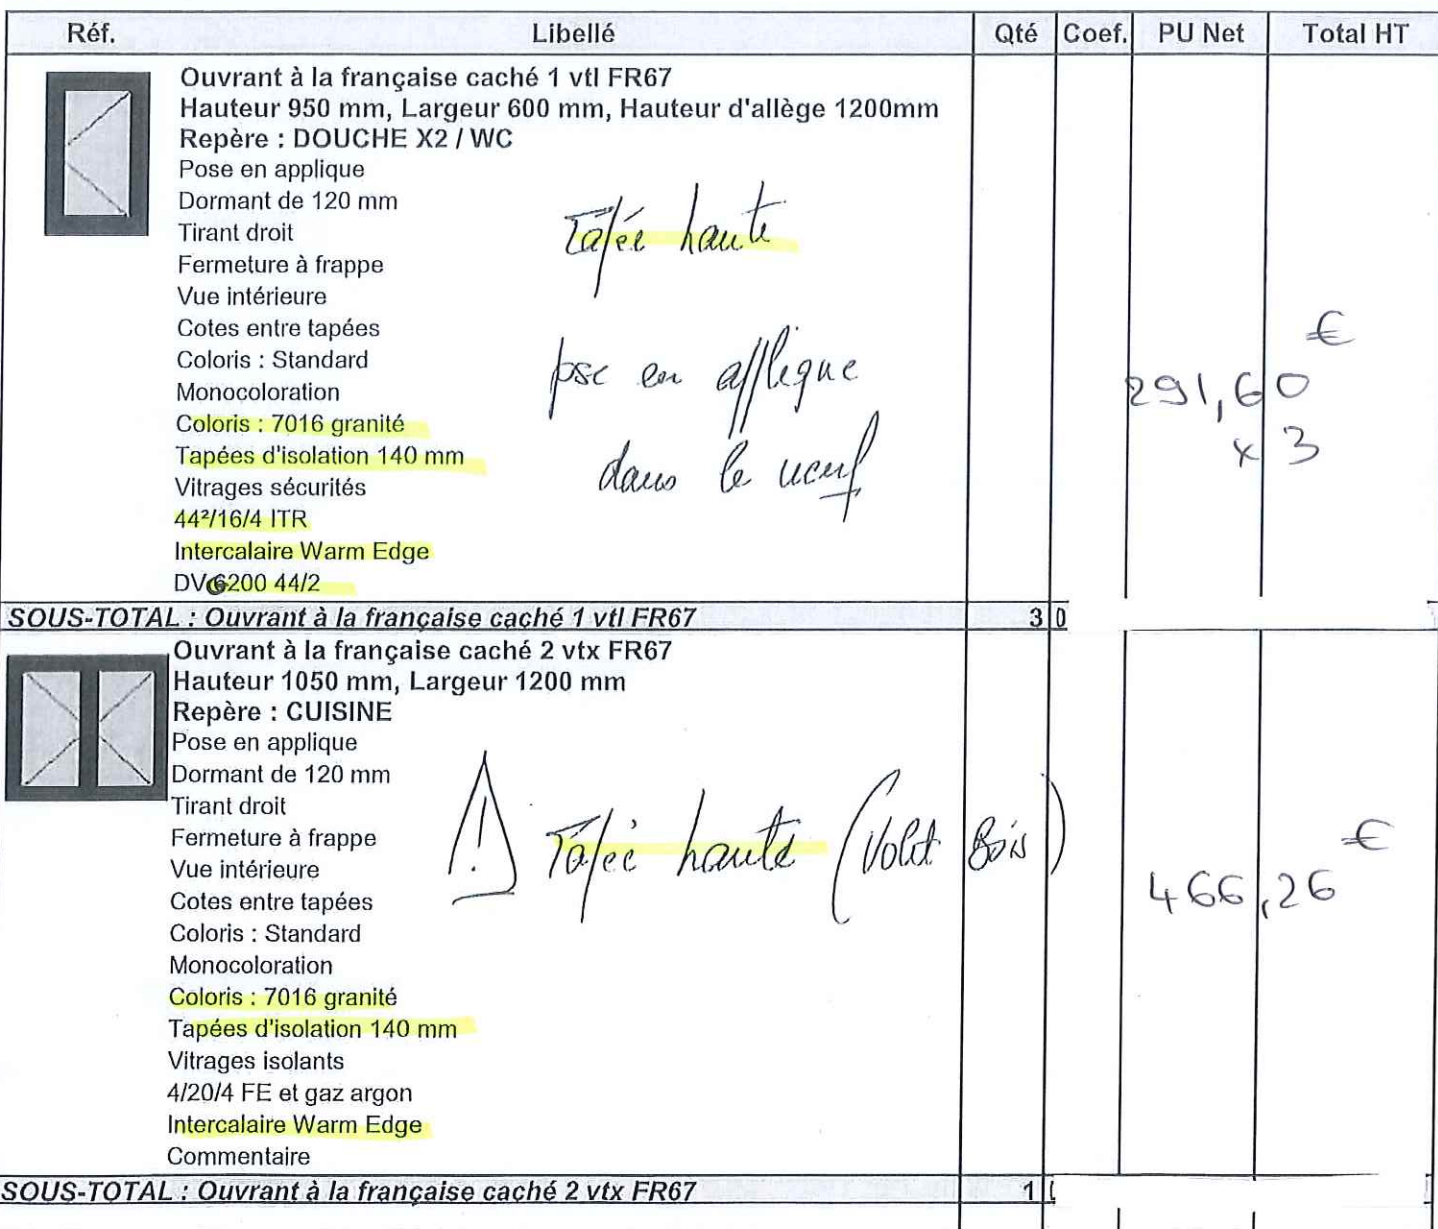 Réf. Libellé Qté Coef. PU Net Total HT
Ouvrant à la française caché 1 vtl FR67
Hauteur 950 mm, Largeur 600 mm, Hauteur d'allège 1200mm
Repère : DOUCHE X2 / WC
Pose en applique
Dormant de 120 mm
Tirant droit
Tapée haute
Fermeture à frappe
Vue intérieure
Cotes entre tapées
€
Coloris : Standard
pse en applique
Monocoloration
291,60
Coloris : 7016 granité
x 3
Tapées d'isolation 140 mm
dans le neuf
Vitrages sécurités
44²/16/4 ITR
Intercalaire Warm Edge
DV 6200 44/2
SOUS-TOTAL : Ouvrant à la française caché 1 vtl FR67 3 0
Ouvrant à la française caché 2 vtx FR67
Hauteur 1050 mm, Largeur 1200 mm
Repère : CUISINE
Pose en applique
Dormant de 120 mm
Tirant droit
Fermeture à frappe
! Tapée haute (Volet Bois)
€
Vue intérieure
466,26
Cotes entre tapées
Coloris : Standard
Monocoloration
Coloris : 7016 granité
Tapées d'isolation 140 mm
Vitrages isolants
4/20/4 FE et gaz argon
Intercalaire Warm Edge
Commentaire
SOUS-TOTAL : Ouvrant à la française caché 2 vtx FR67 1